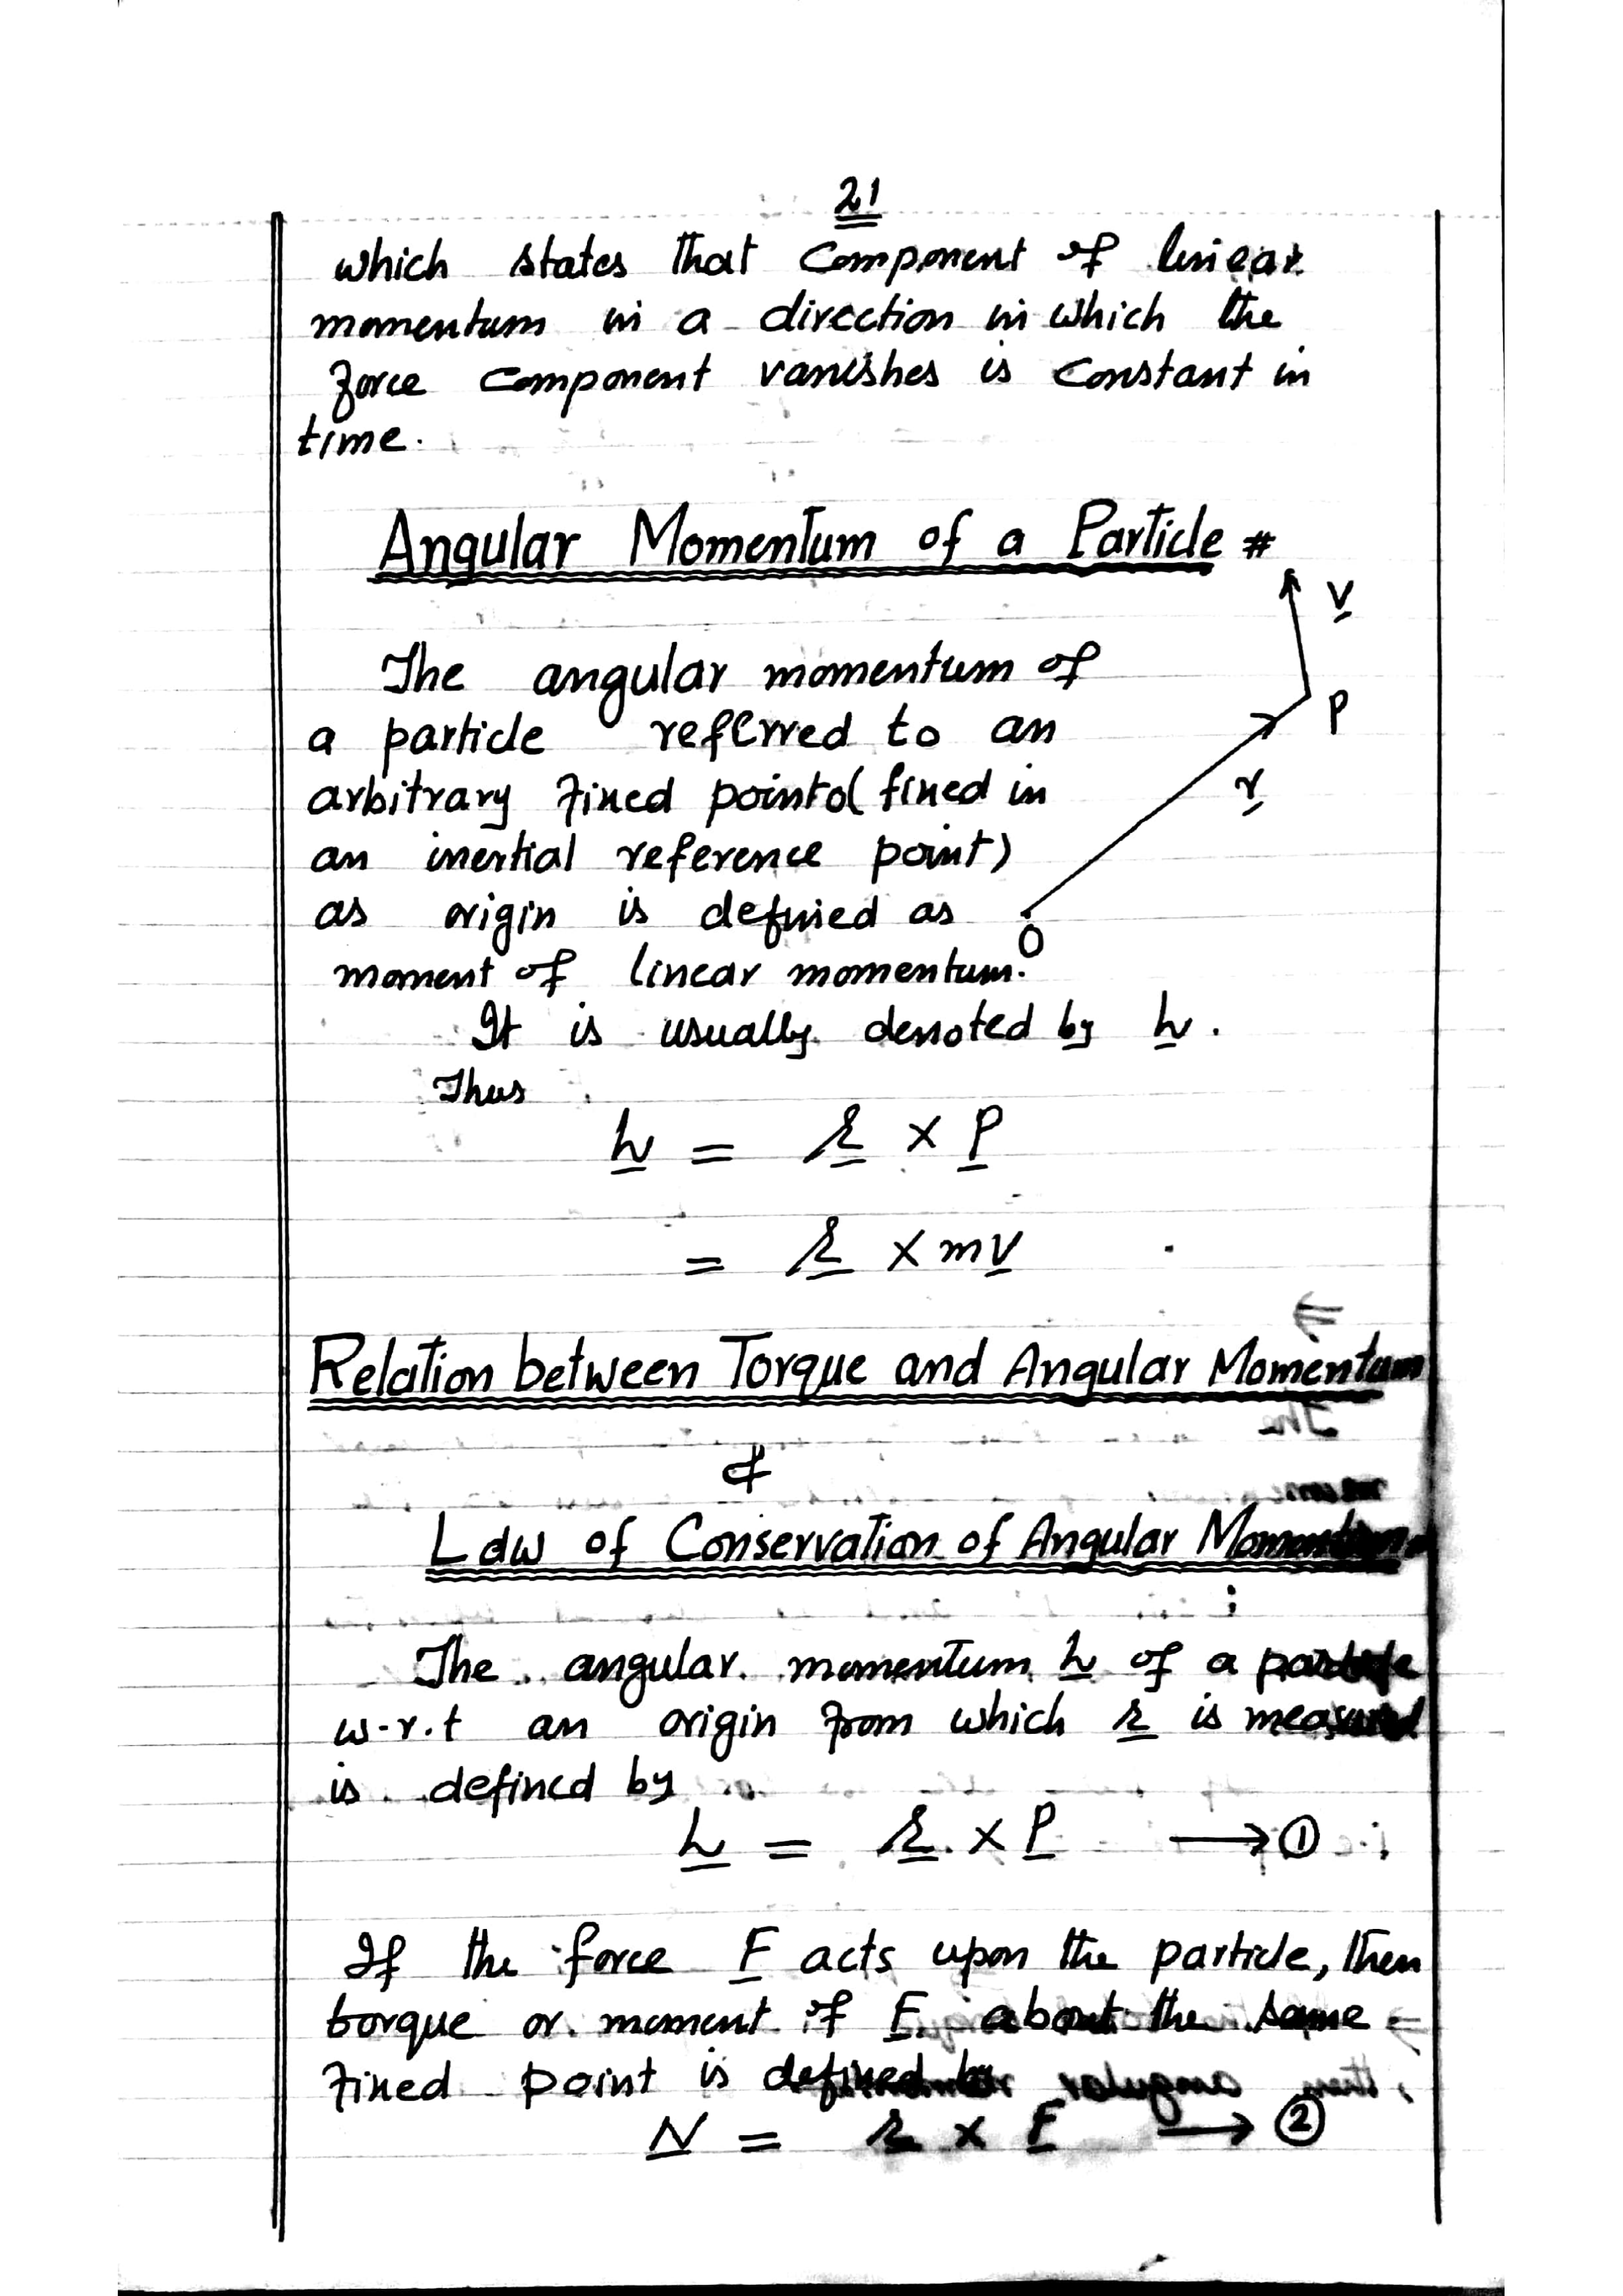 21
which states that component of linear
momentum in a direction in which the
force component vanishes is constant in
time.
Angular Momentum of a Particle #
V
The angular momentum of
P
a particle referred to an
r
arbitrary fixed point o( fixed in
an inertial reference point)
as origin is defined as
O
moment of linear momentum.
It is usually denoted by h.
Thus
h = r × P
= r × mv
Relation between Torque and Angular Momentum
&
Law of Conservation of Angular Momentum
The angular momentum h of a particle
w.r.t an origin from which r is measured
is defined by
h = r × P → ①
If the force F acts upon the particle, then
torque or moment of F about the same
fixed point is defined by
N = r × F → ②